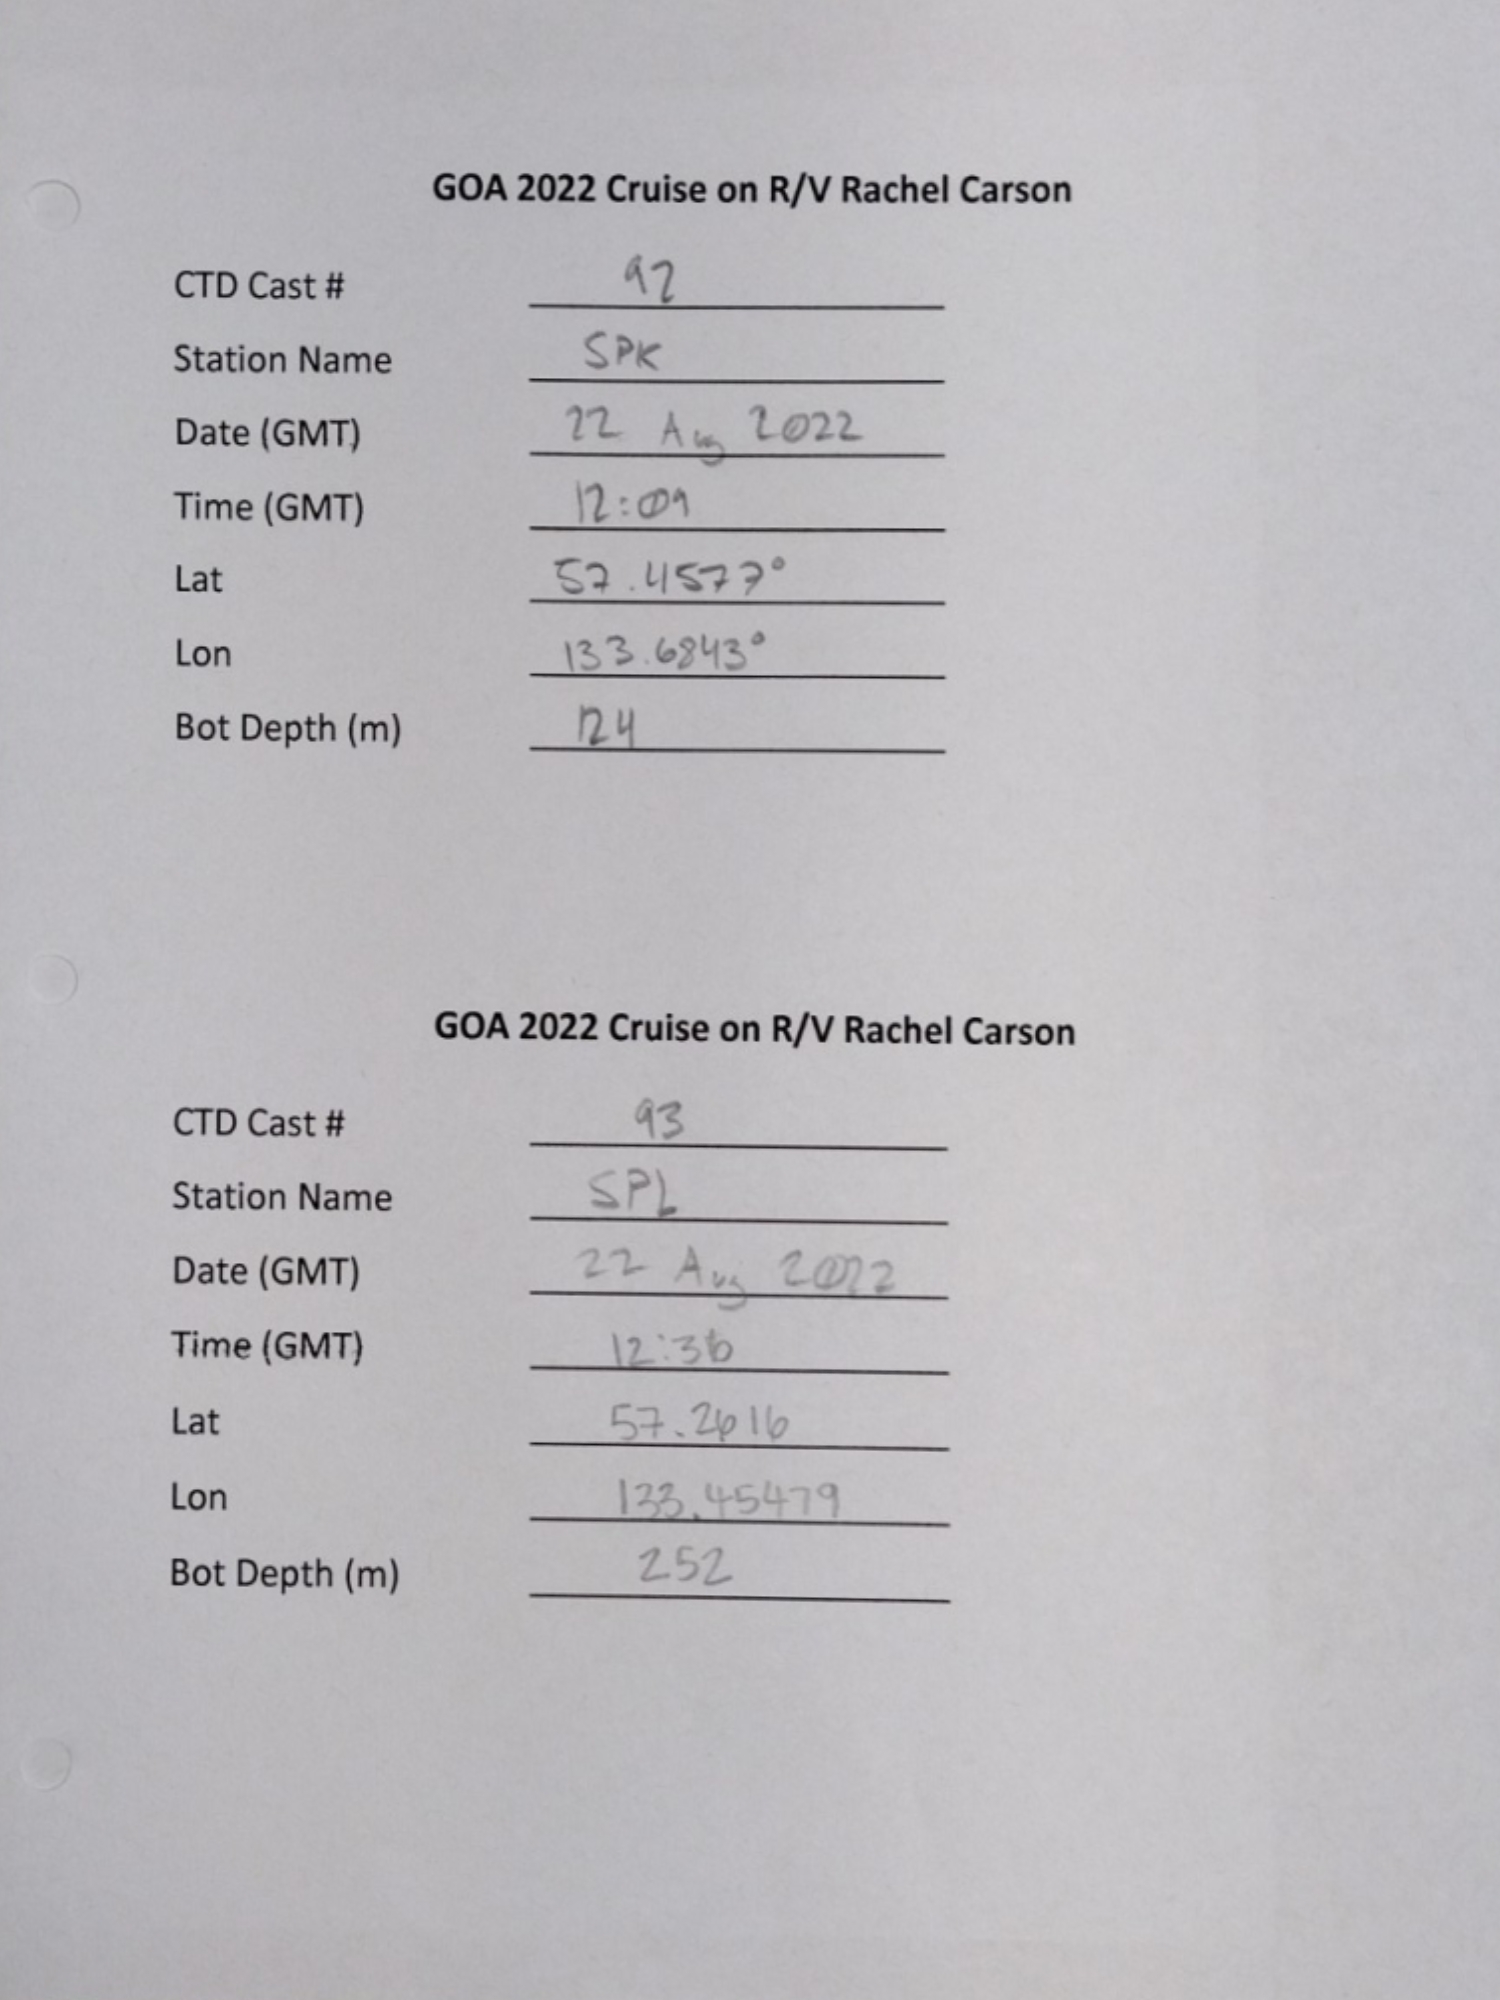 GOA 2022 Cruise on R/V Rachel Carson
CTD Cast # 92
Station Name SPK
Date (GMT) 22 Aug 2022
Time (GMT) 12:09
Lat 57.4577°
Lon 133.6843°
Bot Depth (m) 124
GOA 2022 Cruise on R/V Rachel Carson
CTD Cast # 93
Station Name SPL
Date (GMT) 22 Aug 2022
Time (GMT) 12:36
Lat 57.2616
Lon 133.45479
Bot Depth (m) 252